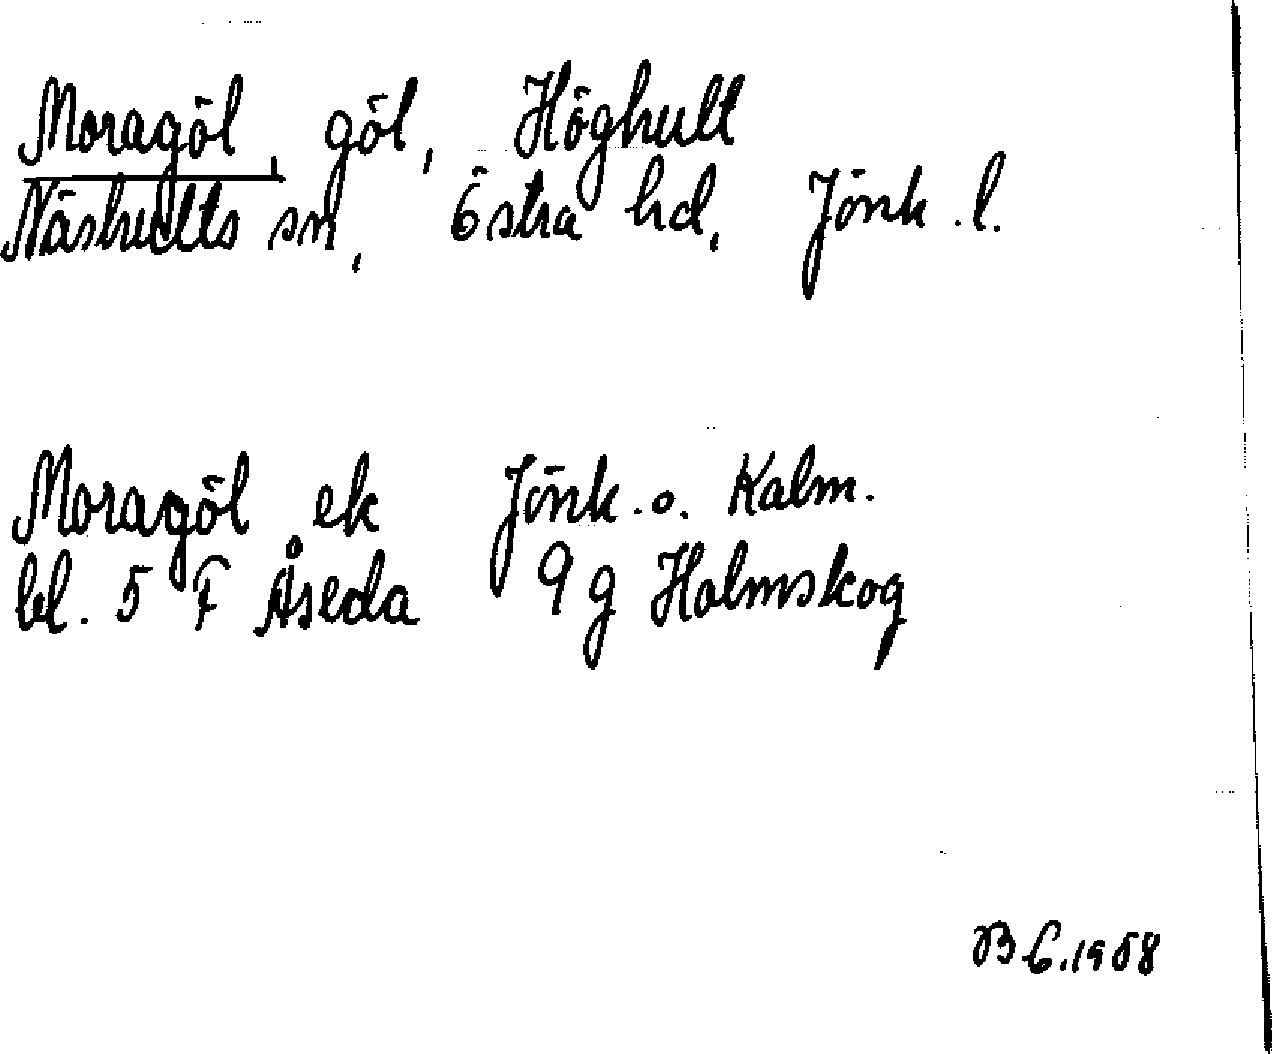 Moragöl, göl, Höghult
Näshults sn, Östra hd, Jönk. l.
Moragöl ek Jönk. o. Kalm.
bl. 5 F Åseda 9 g Holmskog
B G. 1958